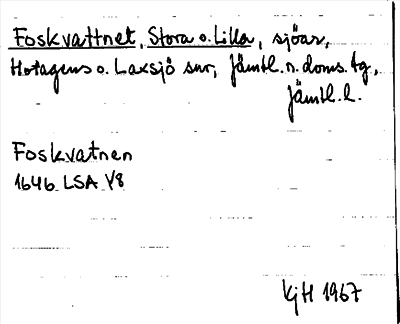 Foskvattnet, Stora o. Lilla, sjöar,
Hotagens o. Laxsjö snr, Jämtl. n. doms. tg,
Jämtl. l.
Foskvatnen
1646 LSA V8
KjH 1967